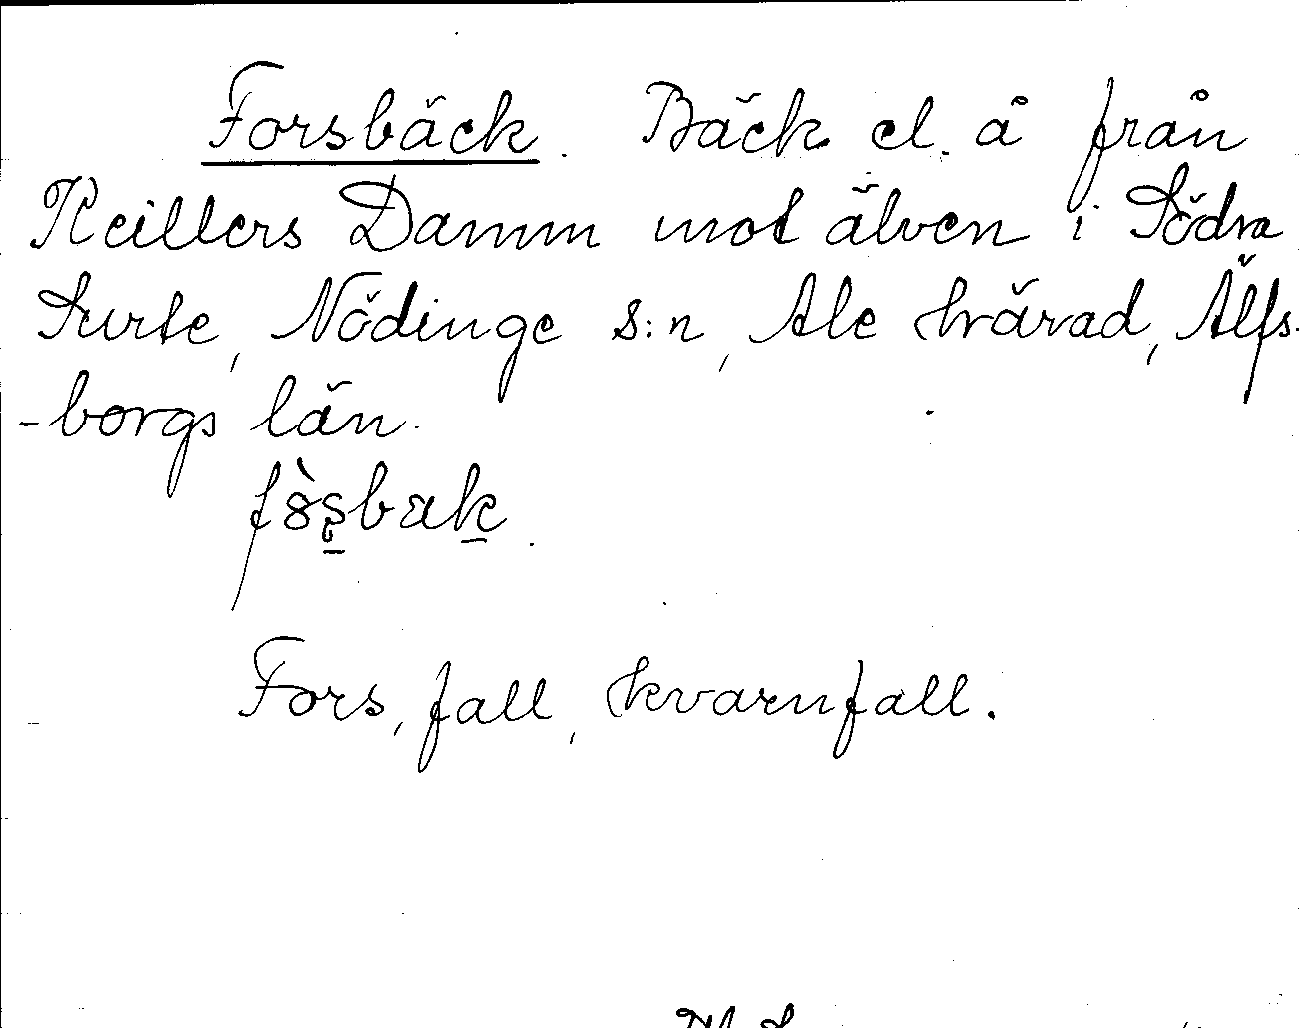 Forsbäck. Bäck el. å från
Keillers Damm mot älven i Södra
Surte, Nödinge s:n, Ale härad, Älfs-
-borgs län.
Fors, fall, kvarnfall.